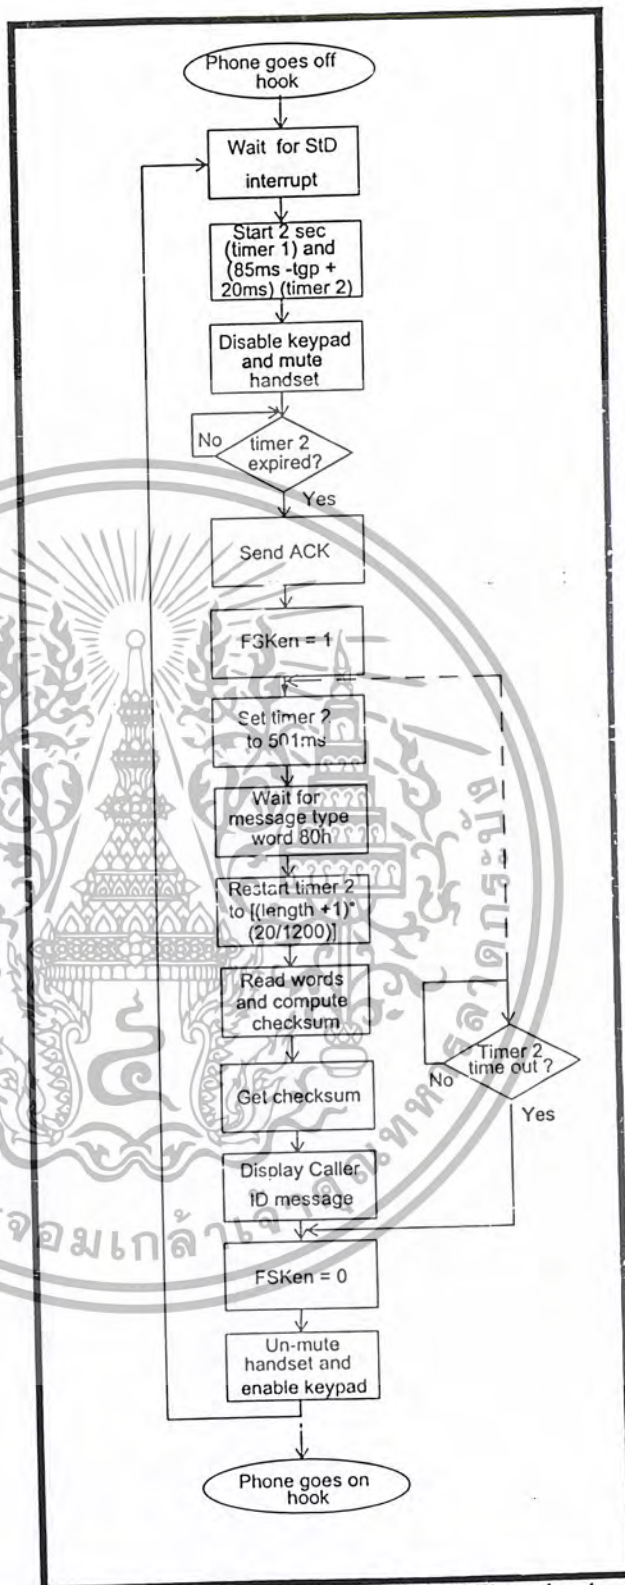 Phone goes off
hook
Wait for StD
interrupt
Start 2 sec
(timer 1) and
(85ms -tgp +
20ms) (timer 2)
Disable keypad
and mute
handset
No
timer 2
expired?
Yes
Send ACK
FSKen = 1
Set timer 2
to 501ms
Wait for
message type
word 80h
Restart timer 2
to [(length +1)*
(20/1200)]
Read words
and compute
checksum
Timer 2
time out ?
No
Yes
Get checksum
Display Caller
ID message
FSKen = 0
Un-mute
handset and
enable keypad
Phone goes on
hook
จอมเกล้าเจ้าคุณทหารลาดกระบัง